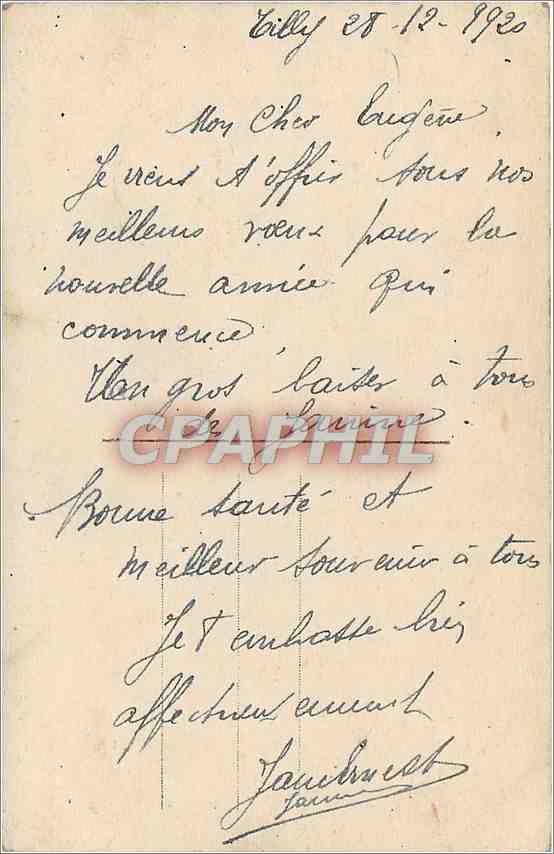 Tilly 28-12-1920
Mon Cher Eugène
Je viens t'offrir tous nos
meilleurs vœux pour la
nouvelle année qui
commence,
Un gros baiser à tous
de Janine.
CPAPHIL
Bonne santé et
meilleur souvenir à tous
Je t'embrasse bien
affectueusement